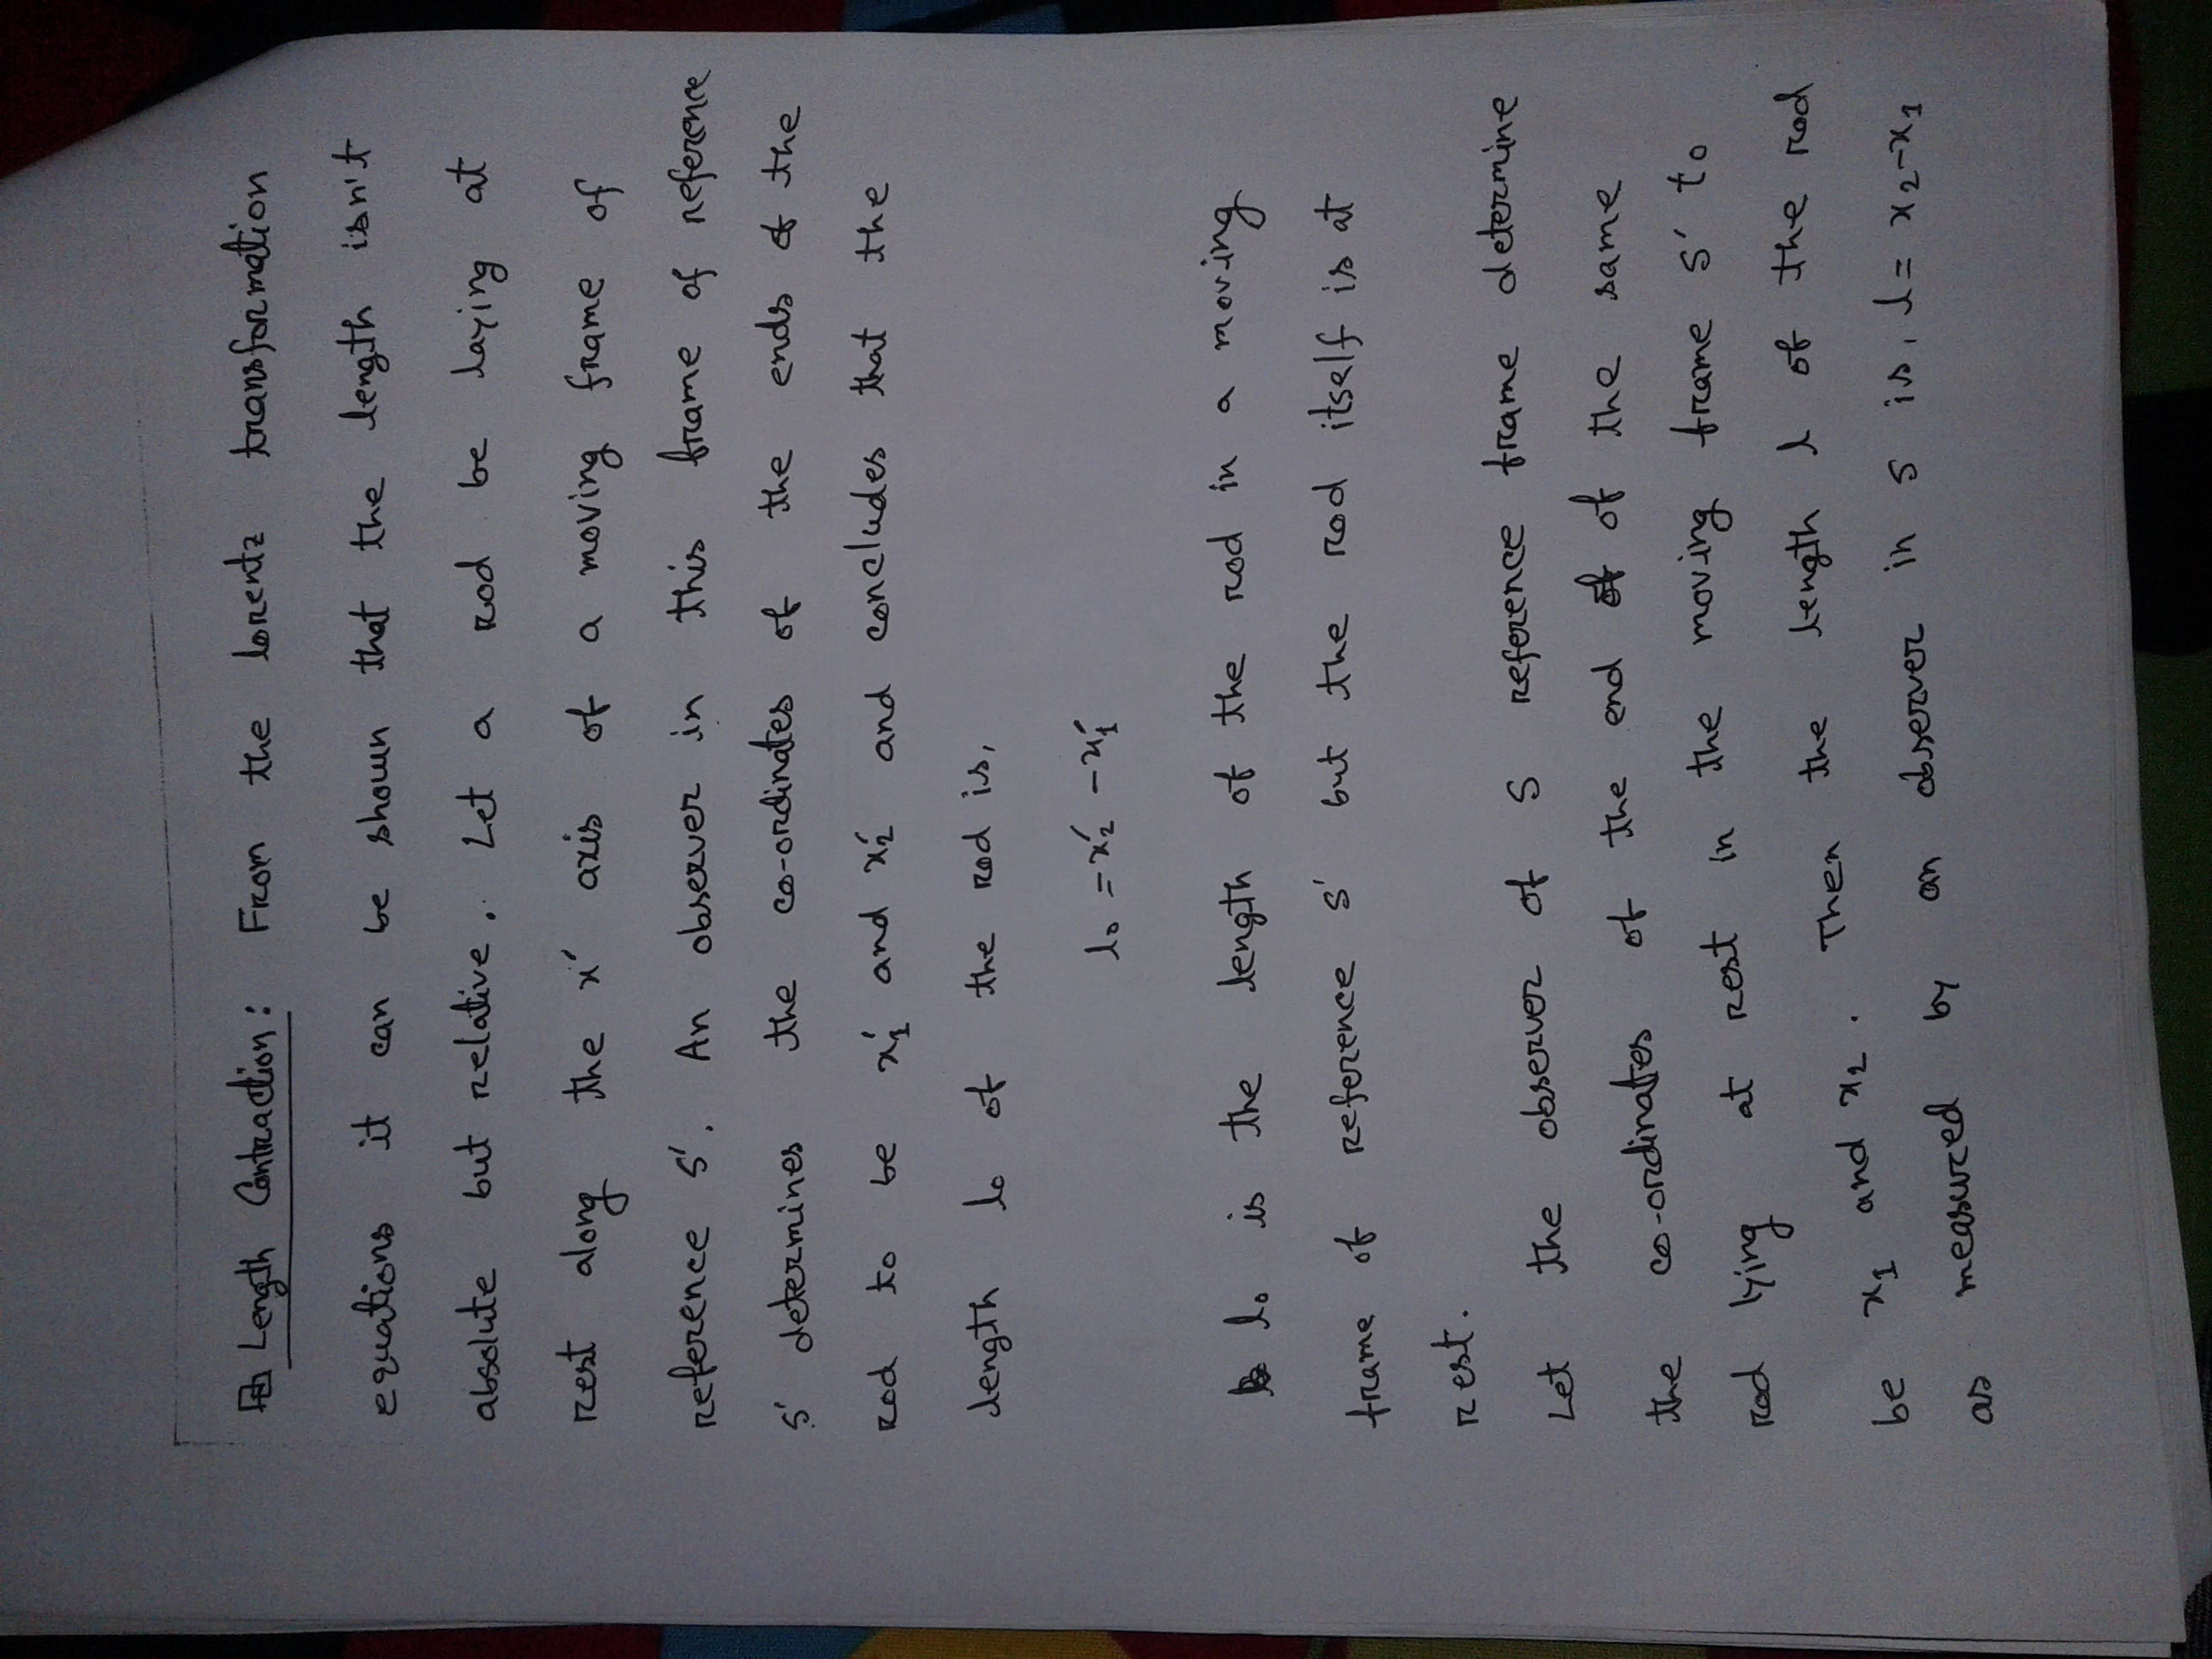 Length Contraction: From the lorentz transformation
equations it can be shown that the length isn't
absolute but relative. Let a rod be laying at
rest along the x' axis of a moving frame of
reference S'. An observer in this frame of reference
S' determines the co-ordinates of the ends of the
rod to be x₁' and x₂' and concludes that the
length l₀ of the rod is,
l₀ = x₂' - x₁'
l₀ is the length of the rod in a moving
frame of reference S' but the rod itself is at
rest.
Let the observer of S reference frame determine
the co-ordinates of the end of of the same
rod lying at rest in the moving frame S' to
be x₁ and x₂. Then the length l of the rod
as measured by an observer in S is, l = x₂-x₁